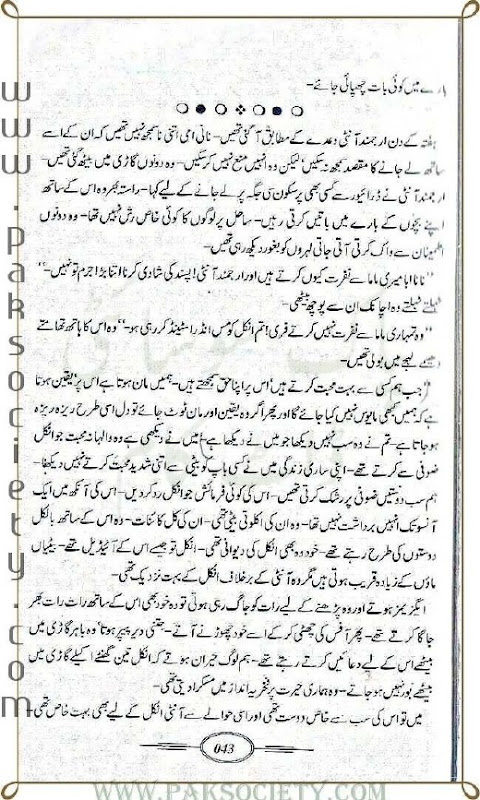 بارے میں کوئی بات چھپائی جائے۔
ہفتہ کے دن ارجمند آنٹی وعدے کے مطابق آ گئی تھیں۔ نانی امی اتنی ناسمجھ نہیں تھیں کہ ان کے اسے
ساتھ لے جانے کا مقصد سمجھ نہ سکیں' لیکن وہ انہیں منع نہیں کر سکیں۔ وہ دونوں گاڑی میں بیٹھ گئی تھیں۔
ارجمند آنٹی نے ڈرائیور سے کسی بھی پر سکون سی جگہ پر لے جانے کے لیے کہا۔ راستہ بھر وہ اس کے ساتھ
اپنے بچوں کے بارے میں باتیں کرتی رہیں۔ ساحل پر لوگوں کا کوئی خاص رش نہیں تھا۔ وہ دونوں
اطمینان سے واک کرتی آتی جاتی لہروں کو بغور دیکھ رہی تھیں۔
''نانا ابا میری ماما سے نفرت کیوں کرتے ہیں اور ارجمند آنٹی! پسند کی شادی کرنا اتنا بڑا جرم تو نہیں۔''
ٹہلتے ٹہلتے وہ اچانک ان سے پوچھ بیٹھی۔
''وہ تمہاری ماما سے نفرت نہیں کرتے فری! تم انکل کو مس انڈر اسٹینڈ کر رہی ہو۔'' وہ اس کا ہاتھ تھامتے
دھیمے لہجے میں بولی تھیں۔
''جب ہم کسی سے بہت محبت کرتے ہیں' اس پر اپنا حق سمجھتے ہیں۔ ہمیں مان ہوتا ہے اس پر' یقین ہوتا
ہے کہ ہمیں کبھی مایوس نہیں کیا جائے گا اور پھر اگر وہ یقین اور مان ٹوٹ جائے تو دل اسی طرح ریزہ ریزہ
ہو جاتا ہے۔ تم نے وہ سب نہیں دیکھا جو میں نے دیکھا ہے۔ میں نے دیکھی ہے وہ والہانہ محبت جو انکل
ضوفی سے کرتے تھے۔ اپنی ساری زندگی میں نے کسی باپ کو بیٹی سے اتنی شدید محبت کرتے نہیں دیکھا۔
ہم سب دوستیں ضوفی پر رشک کرتی تھیں۔ اس کی کوئی فرمائش جو انکل رد کر دیں۔ اس کی آنکھ میں ایک
آنسو تک انہیں برداشت نہیں تھا۔ وہ ان کی اکلوتی بیٹی تھی۔ ان کی کل کائنات۔ وہ اس کے ساتھ بالکل
دوستوں کی طرح رہتے تھے۔ خود وہ بھی انکل کی دیوانی تھی۔ انکل تو جیسے اس کے آئیڈیل تھے۔ بیٹیاں
ماؤں کے زیادہ قریب ہوتی ہیں مگر وہ آنٹی کے برخلاف انکل کے بہت نزدیک تھی۔
ایگزیمز ہوتے اور وہ پڑھنے کے لیے رات کو جاگ رہی ہوتی تو وہ خود بھی اس کے ساتھ رات رات بھر
جاگا کرتے تھے۔ پھر آفس کی چھٹی کر کے اسے خود چھوڑنے آتے۔ جتنی دیر پیپر ہوتا' وہ باہر گاڑی میں
بیٹھے اس کے لیے دعائیں کرتے رہتے تھے۔ ہم لوگ حیران ہوتے کہ انکل تین گھنٹے اکیلے گاڑی میں
بیٹھے بور نہیں ہو جاتے۔ وہ ہماری حیرت پر فخریہ انداز میں مسکرا دیتی تھی۔
میں تو اس کی سب سے خاص دوست تھی اور اسی حوالے سے آنٹی انکل کے لیے بھی بہت خاص تھی۔
043
www.paksociety.com
WWW.PAKSOCIETY.COM